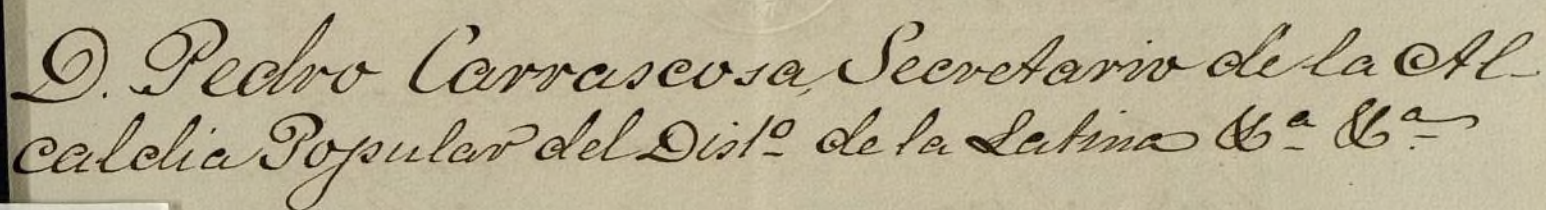 D. Pedro Carrascosa, Secretario de la Al-
caldia Popular del Dist.º de la Latina &.ª &.ª